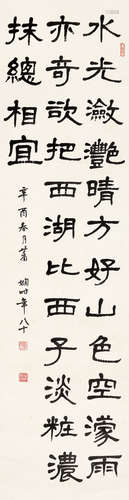 水光瀲灩晴方好山色空濛雨
亦奇欲把西湖比西子淡粧濃
抹總相宜
辛酉春月蕭嫻時年八十